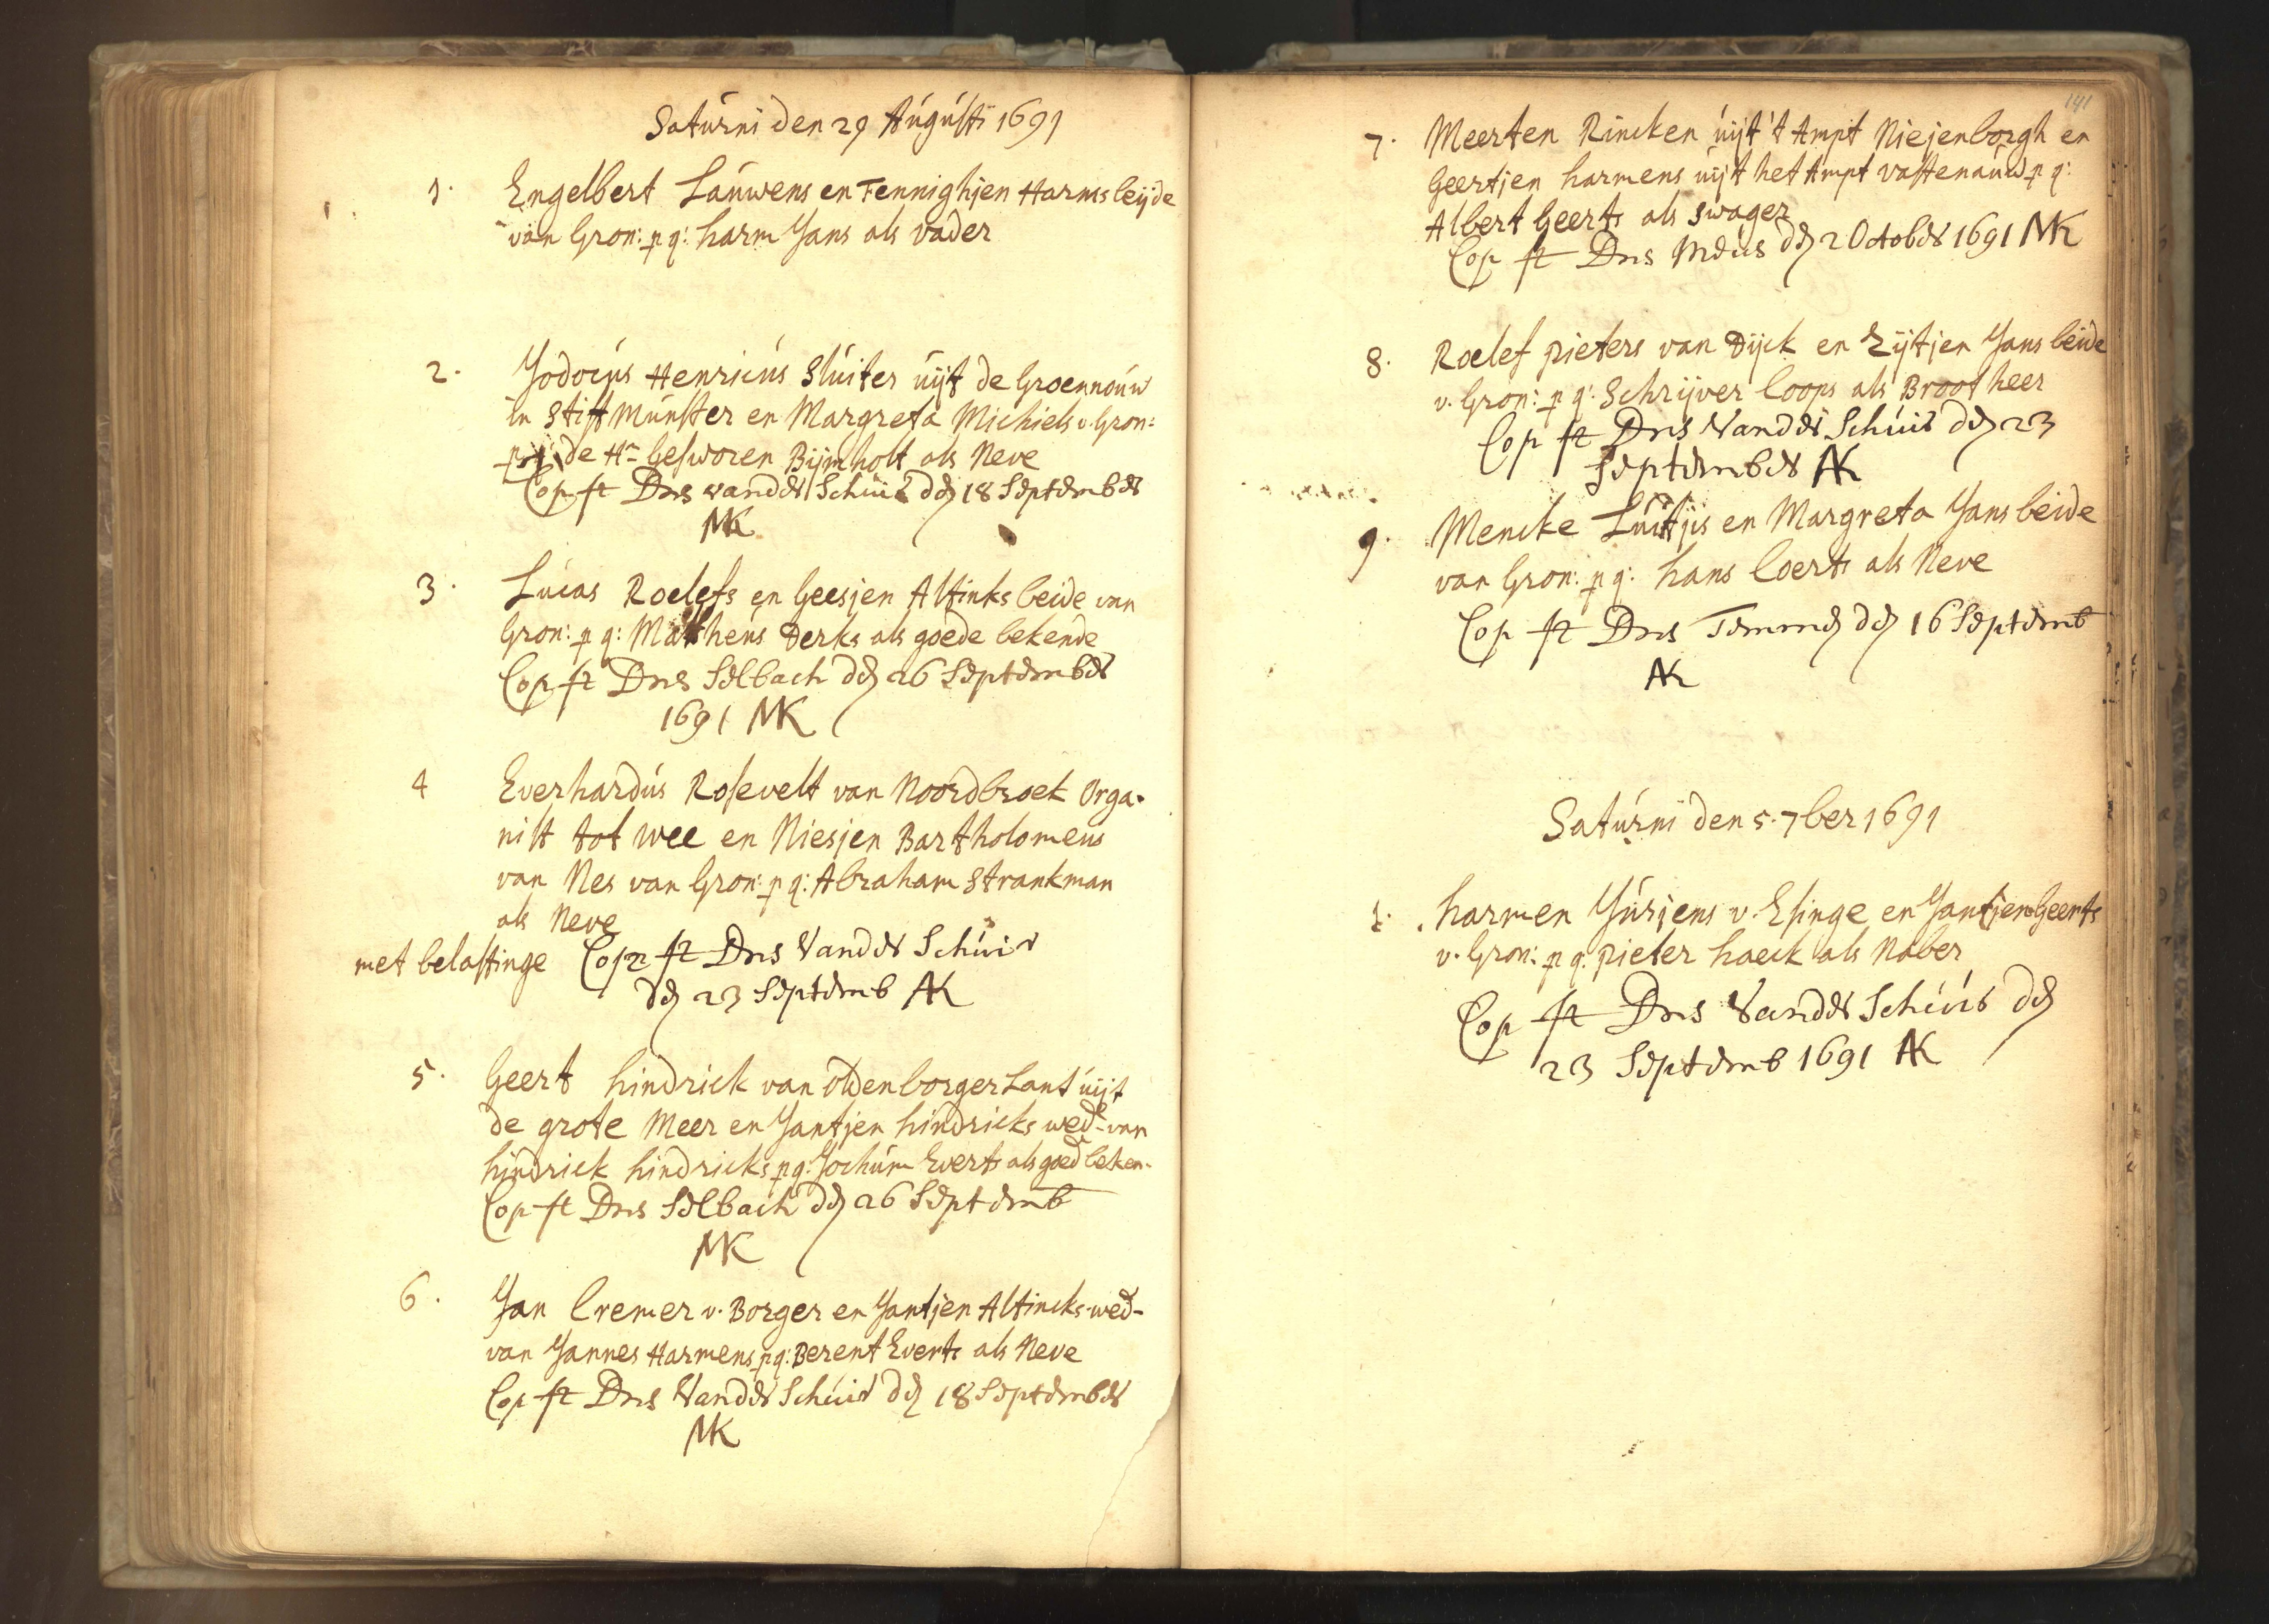 Saturni den 29 Augusti 1691
1. Engelbert Lauwens en Fennighjen Harms beijde
van Gron: p q: harm Jans als vader
2. Jodocus Henricus Sluiter uijt de Groennouw
in Stift Munster en Margreta Michiels v. Gron:
de Hr besworen Bijmholt als Neve
Cop. ft Dns vander Schuir den 18 September
MK
3. Lucas Roelefs en Geesjen Altinks beide van
Gron: p q: Mattheus Derks als goede bekende
Cop. ft Dns Selbach den 26 September
1691 MK
4 Everhardus Rosevelt van Noordbroek Orga-
nist tot wee en Niesjen Bartholomeus
van Nes van Gron: p q: Abraham Strankman
als Neve
met belastinge Cop ft Dns Vander Schuir
den 23 Septemb AK
5. Geert hindrick van oldenborger Lant uijt
de grote Meer en Jantjen hindricks wed- van
hindrick hindricks p q: Jochum Everts als goed beken-
Cop ft Dns Selbach den 26 Septemb
MK
6. Jan Cremer v. Borger en Jantjen Altincks wed-
van Jannes Harmens p q: Berent Everts als Neve
Cop ft Dns Vander Schuir den 18 September
MK
141
7. Meerten Rincken uijt 't Ampt Niejenborgh en
Geertjen harmens uijt het Ampt vastenauw p q:
Albert Geerts als swager
Cop ft Dns den 2 October 1691 MK
8. Roelef pieters van Dijck en Eijtjen Jans beide
v. Gron: p q: Schrijver Coops als Broot heer
Cop ft Dns Vander Schuir den 23
September AK
9. Mencke Luitjis en Margreta Jans beide
van Gron: p q: hans Coerts als Neve
Cop ft Dns Temmen den 16 Septemb
AK
Saturni den 5. 7ber 1691
1. harmen Jurjens v. Esinge en Jantjen Geerts
v. Gron: p q: pieter haeck als Naber
Cop ft Dns Vander Schuir den
23 Septemb 1691 AK